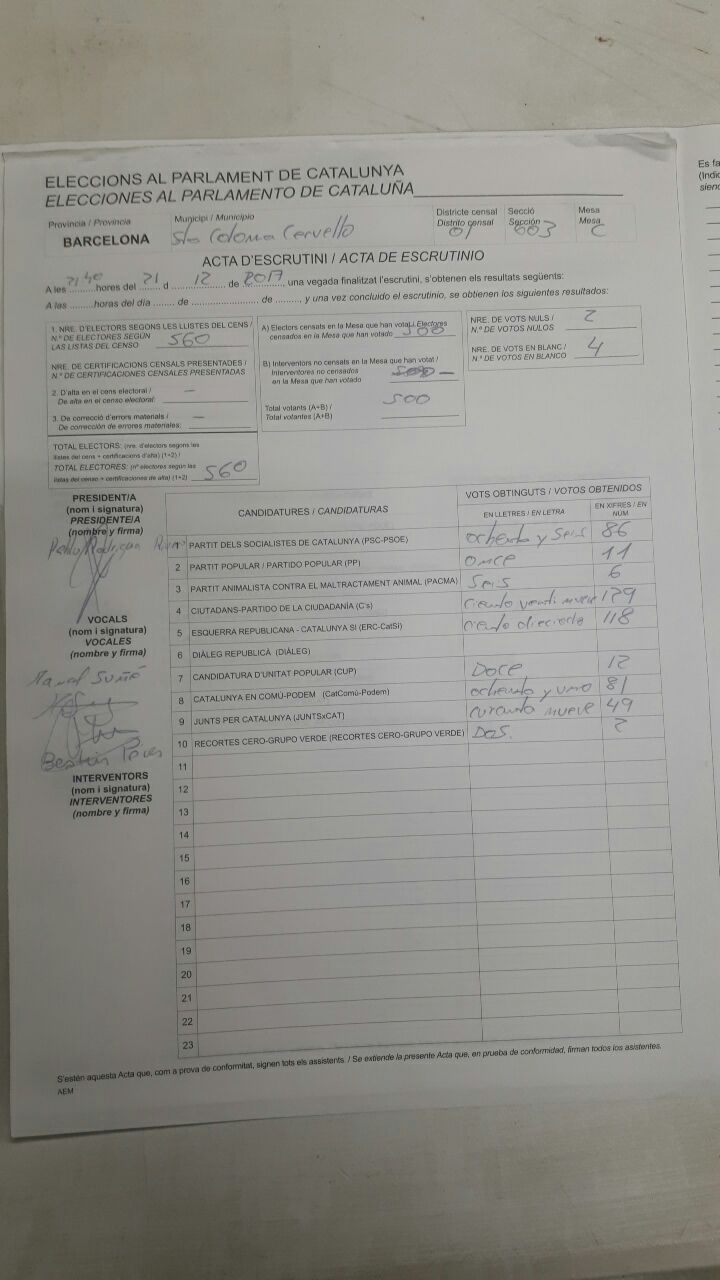 ELECCIONS AL PARLAMENT DE CATALUNYA
ELECCIONES AL PARLAMENTO DE CATALUÑA
Província / Provincia
BARCELONA
Municipi / Municipio
Sta Coloma Cervello
Districte censal
Distrito censal
01
Secció
Sección
003
Mesa
Mesa
C
ACTA D'ESCRUTINI / ACTA DE ESCRUTINIO
A les 21 40 hores del 21 d 12 de 2017, una vegada finalitzat l'escrutini, s'obtenen els resultats següents:
A las ........horas del día ....... de ............................ de ........, y una vez concluido el escrutinio, se obtienen los siguientes resultados:
1. NRE. D'ELECTORS SEGONS LES LLISTES DEL CENS /
N.º DE ELECTORES SEGÚN
LAS LISTAS DEL CENSO 560
NRE. DE CERTIFICACIONS CENSALS PRESENTADES /
N.º DE CERTIFICACIONES CENSALES PRESENTADAS
2. D'alta en el cens electoral /
De alta en el censo electoral: —
3. De correcció d'errors materials /
De corrección de errores materiales: —
TOTAL ELECTORS: (nre. d'electors segons les
llistes del cens + certificacions d'alta) (1+2) /
TOTAL ELECTORES: (nº electores según las
listas del censo + certificaciones de alta) (1+2) 560
A) Electors censats en la Mesa que han votat / Electores
censados en la Mesa que han votado 500
B) Interventors no censats en la Mesa que han votat /
Interventores no censados
en la Mesa que han votado —
Total votants (A+B) /
Total votantes (A+B) 500
NRE. DE VOTS NULS /
N.º DE VOTOS NULOS 2
NRE. DE VOTS EN BLANC /
N.º DE VOTOS EN BLANCO 4
PRESIDENT/A
(nom i signatura)
PRESIDENTE/A
(nombre y firma)
VOCALS
(nom i signatura)
VOCALES
(nombre y firma)
Manel Suñé
INTERVENTORS
(nom i signatura)
INTERVENTORES
(nombre y firma)
CANDIDATURES / CANDIDATURAS
VOTS OBTINGUTS / VOTOS OBTENIDOS
EN LLETRES / EN LETRA
EN XIFRES / EN NÚM
1 PARTIT DELS SOCIALISTES DE CATALUNYA (PSC-PSOE) ochenta y seis 86
2 PARTIT POPULAR / PARTIDO POPULAR (PP) once 11
3 PARTIT ANIMALISTA CONTRA EL MALTRACTAMENT ANIMAL (PACMA) seis 6
4 CIUTADANS-PARTIDO DE LA CIUDADANÍA (C's) ciento venti nueve 129
5 ESQUERRA REPUBLICANA - CATALUNYA SÍ (ERC-CatSí) ciento dieciocho 118
6 DIÀLEG REPUBLICÀ (DIÀLEG)
7 CANDIDATURA D'UNITAT POPULAR (CUP) Doce 12
8 CATALUNYA EN COMÚ-PODEM (CatComú-Podem) ochenta y uno 81
9 JUNTS PER CATALUNYA (JUNTSxCAT) curanta nueve 49
10 RECORTES CERO-GRUPO VERDE (RECORTES CERO-GRUPO VERDE) Dos. 2
11
12
13
14
15
16
17
18
19
20
21
22
23
S'estén aquesta Acta que, com a prova de conformitat, signen tots els assistents. / Se extiende la presente Acta que, en prueba de conformidad, firman todos los asistentes.
AEM
Es fa
(Indic
siend